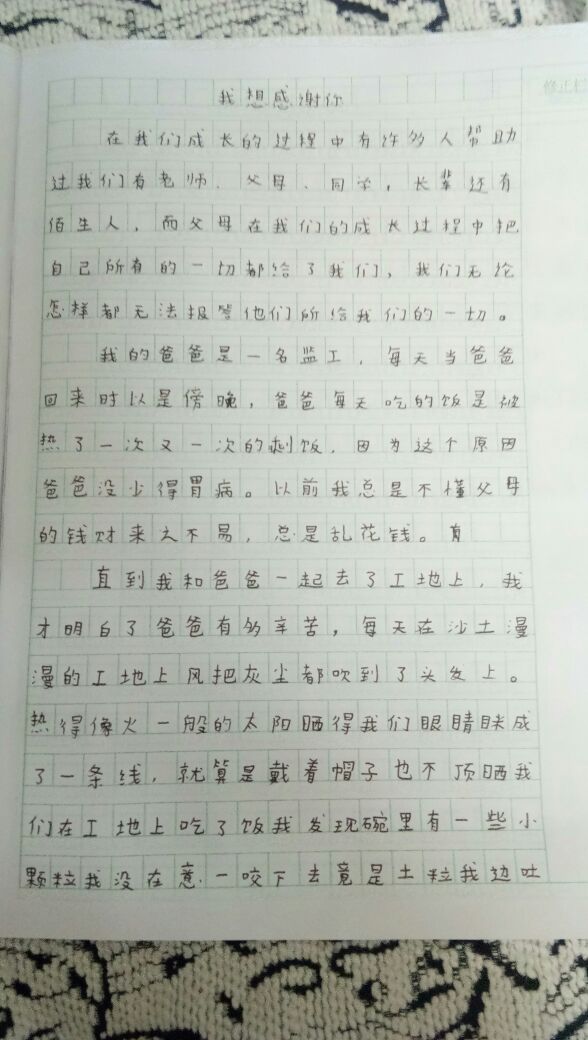 我想感谢你
在我们成长的过程中有许多人帮助
过我们有老师、父母、同学,长辈还有
陌生人,而父母在我们的成长过程中把
自己所有的一切都给了我们,我们无论
怎样都无法报答他们所给我们的一切。
我的爸爸是一名监工,每天当爸爸
回来时以是傍晚,爸爸每天吃的饭是被
热了一次又一次的剩饭,因为这个原因
爸爸没少得胃病。以前我总是不懂父母
的钱财来之不易,总是乱花钱。直
直到我和爸爸一起去了工地上,我
才明白了爸爸有多辛苦,每天在沙土漫
漫的工地上风把灰尘都吹到了头发上。
热得像火一般的太阳晒得我们眼睛眯成
了一条线,就算是戴着帽子也不顶晒我
们在工地上吃了饭我发现碗里有一些小
颗粒我没在意.一咬下去竟是土粒我边吐